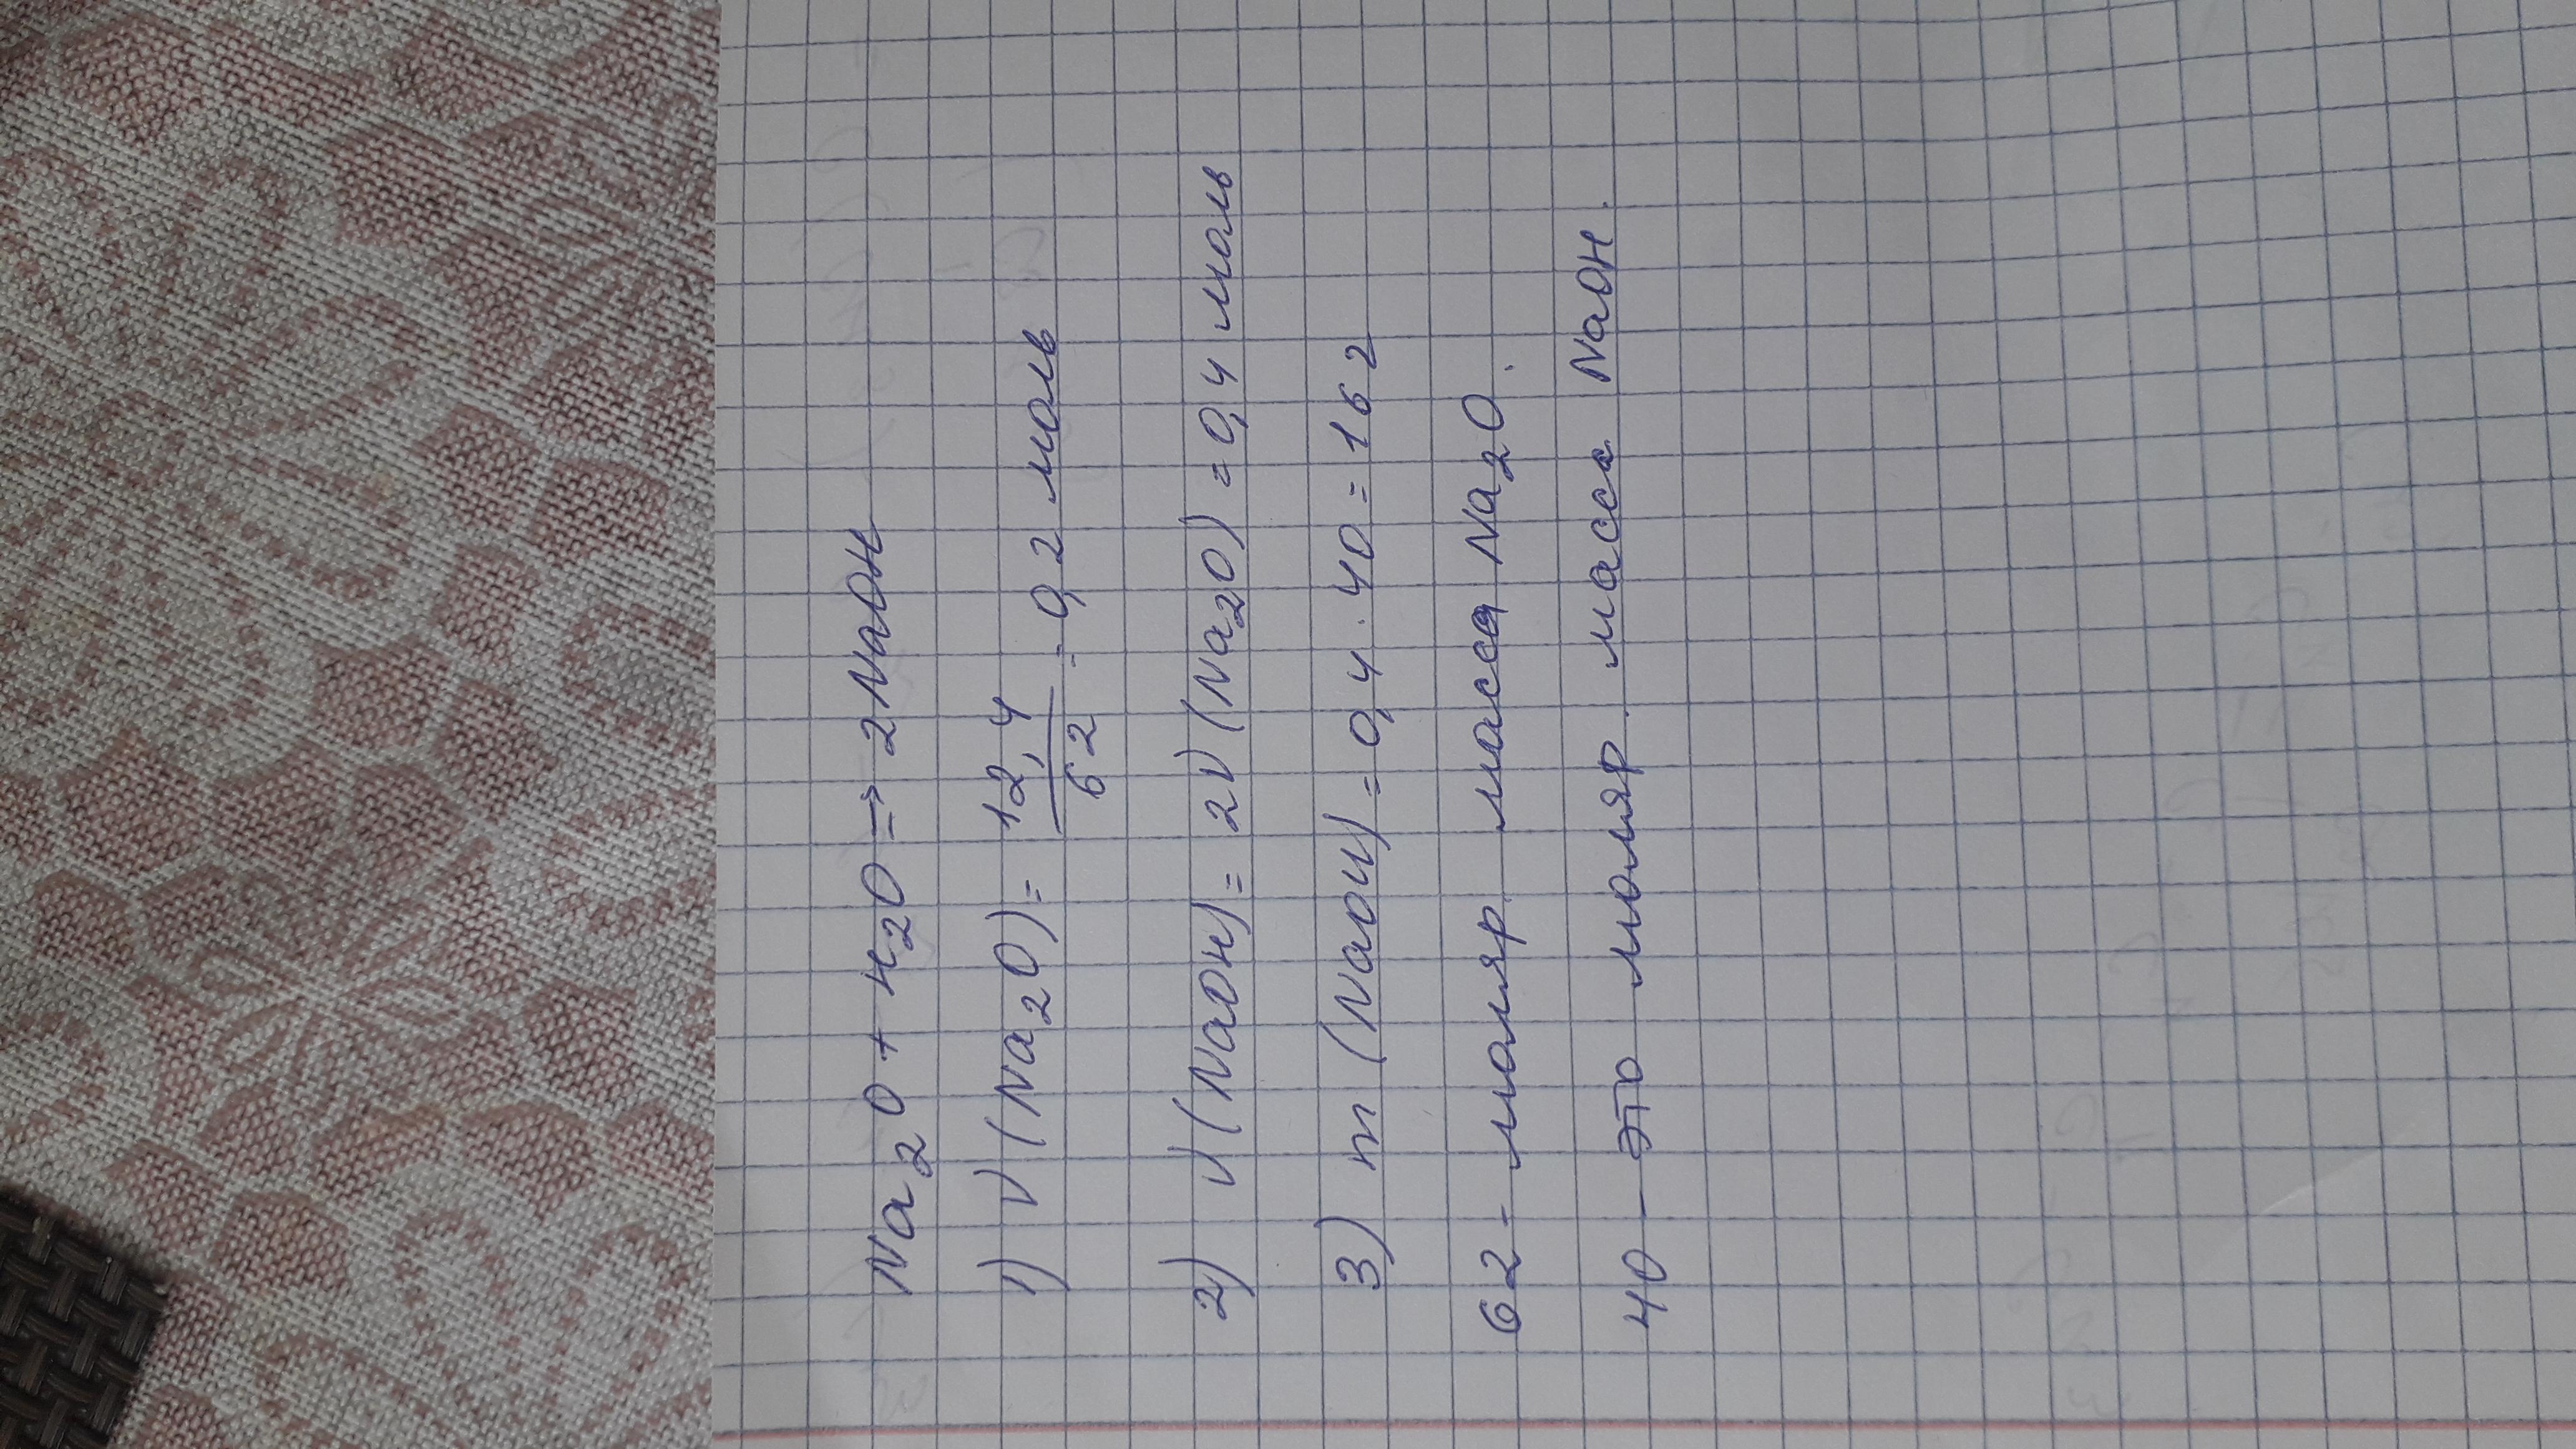 Na₂O + H₂O => 2NaOH
1) ν(Na₂O) = 12,4/62 = 0,2 моль
2) ν(NaOH) = 2ν(Na₂O) = 0,4 моль
3) m (NaOH) = 0,4 · 40 = 16 г
62 - моляр масса Na₂O.
40 - это моляр масса NaOH.